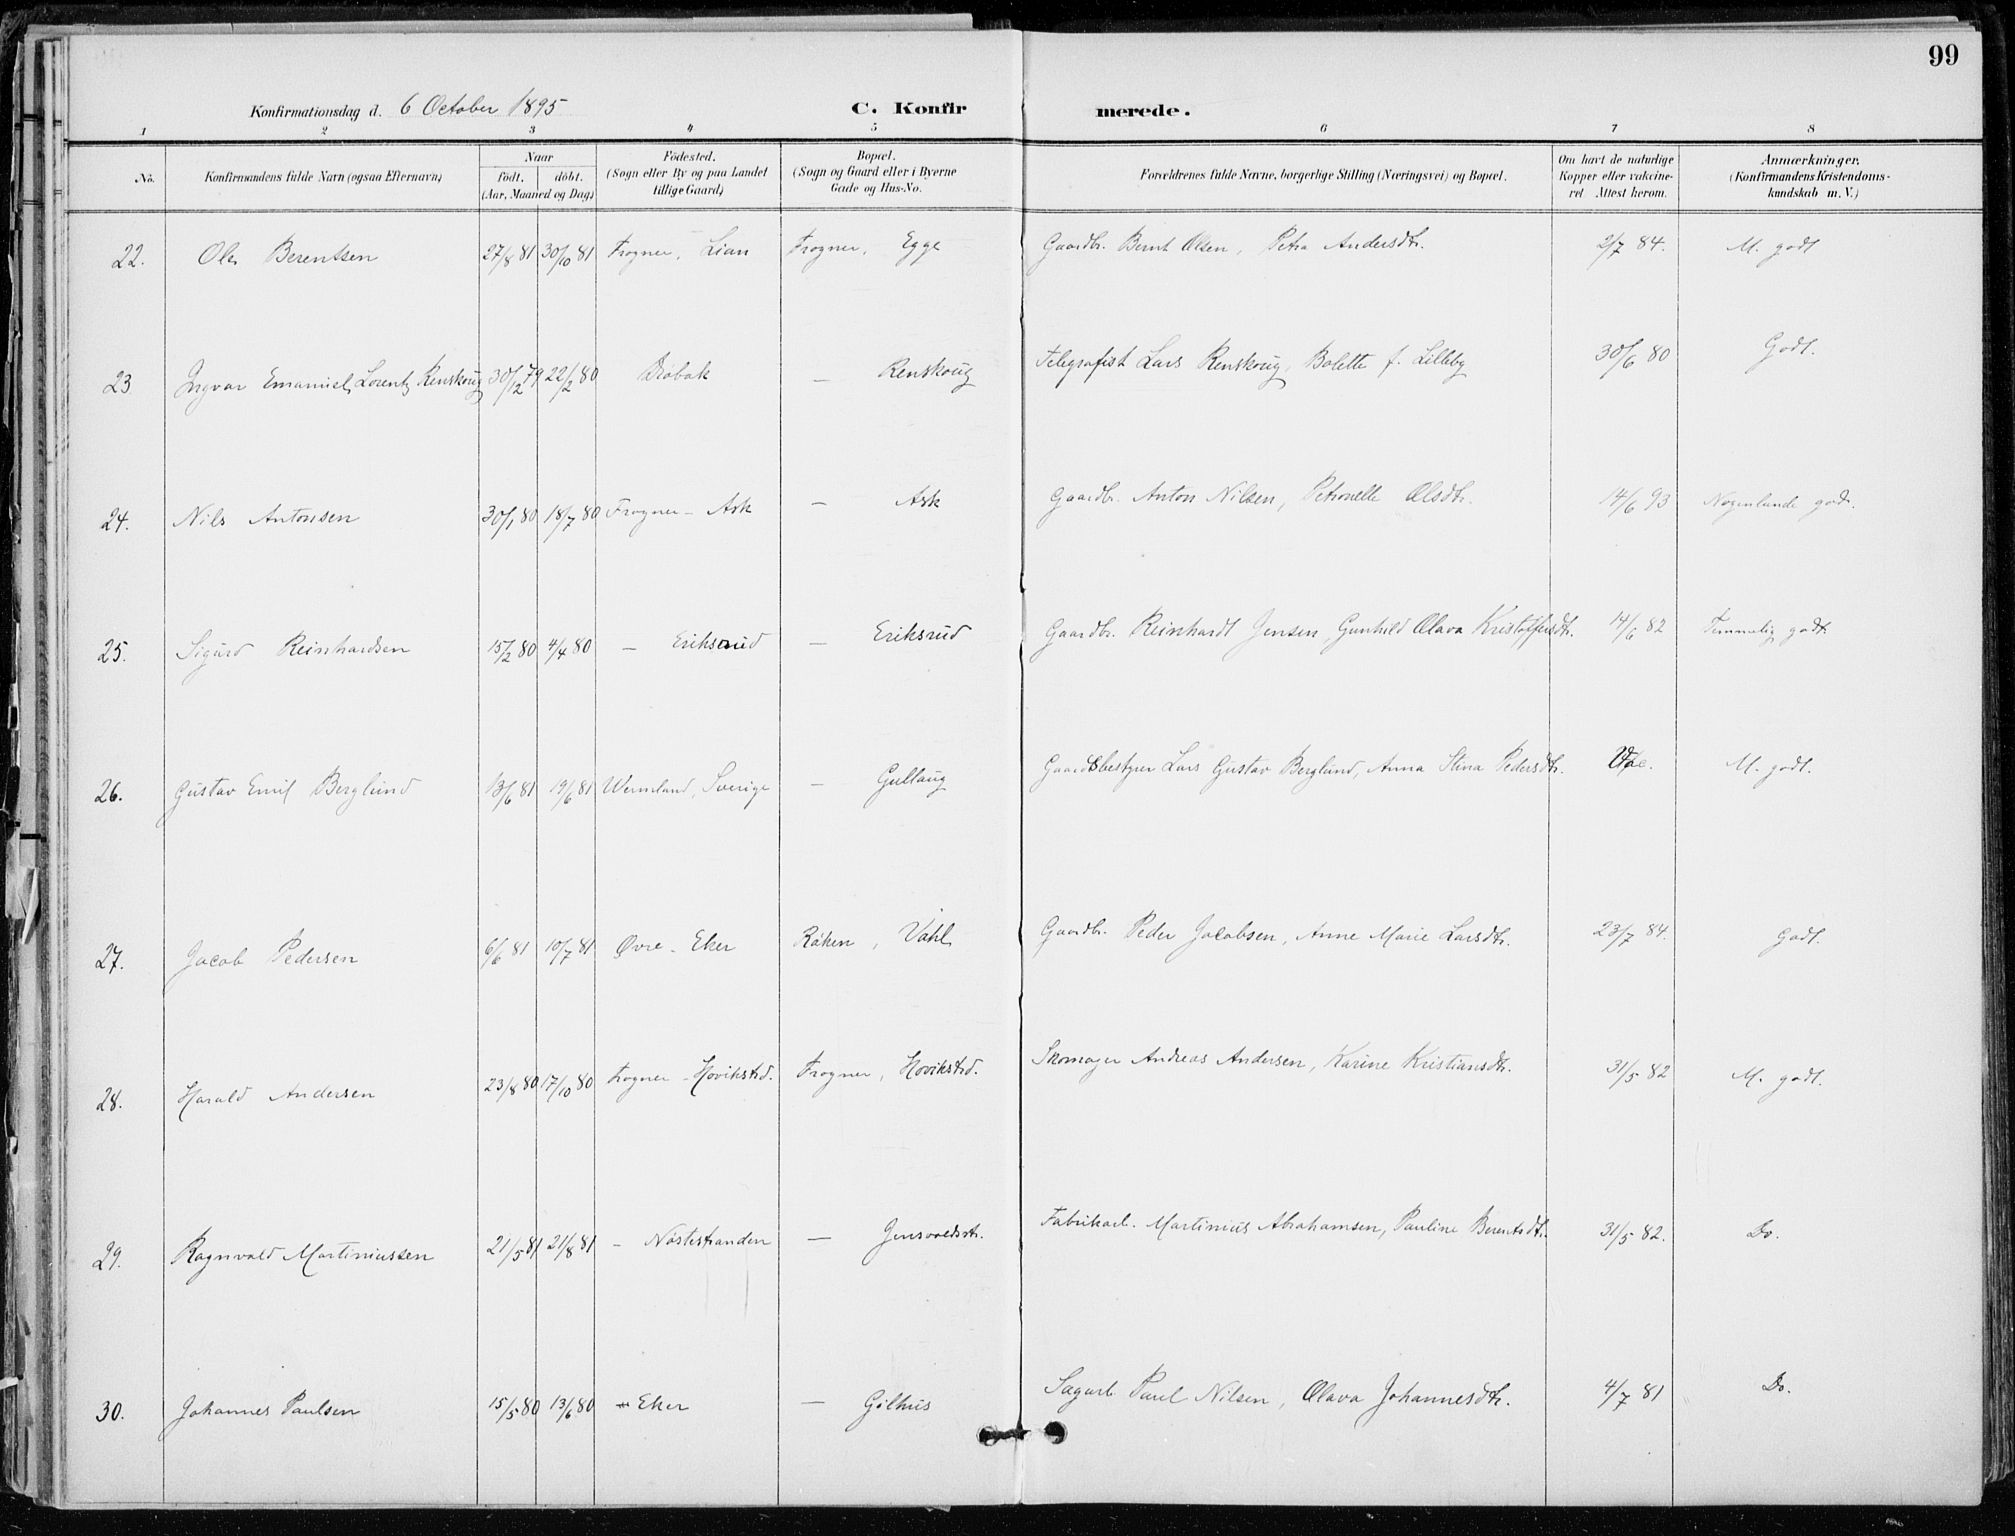 99
Konfirmationsdag d. 6 October 1895 C. Konfirmerede.
1 2 3 4 5 6 7 8
No. Konfirmandens fulde Navn (ogsaa Efternavn) Naar födt. döbt. (Aar, Maaned og Dag) Födested. (Sogn eller By og paa Landet tillige Gaard) Bopæl. (Sogn og Gaard eller i Byerne Gade og Hus-No. Forældrenes fulde Navne, borgerlige Stilling (Næringsvei) og Bopæl. Om havt de naturlige Kopper eller vakcineret Attest herom. Anmærkninger. (Konfirmandens Kristendomskundskab m. V.)
22. Ole Berentsen 27/8 81 30/10 81 Frogner, Lian Frogner, Egge Gaardbr. Bernt Olsen, Petra Andersdtr. 2/7 84. M. godt
23 Ingvar Emanuel Lorentz Renskoug 30/12 79 22/2 80 Dröbak — Renskoug Telegrafist Lars Renskoug, Bolette f. Lilleby 30/6 80 Godt.
24. Nils Antonsen 30/1 80 18/7 80 Frogner - Ask — Ask Gaardbr. Anton Nilsen, Petronelle Olsdtr. 14/6 93 Nogenlunde godt.
25. Sigurd Reinhardsen 15/2 80 4/4 80 — Eriksrud — Eriksrud Gaardbr. Reinhardt Jensen, Gunhild Olava Kristoffersdtr. 14/6 82 Temmelig godt.
26. Gustav Emil Berglund 13/6 81 19/6 81 Wermland, Sverige — Gullaug Gaardsbestyrer Lars Gustav Berglund, Anna Stina Pedersdtr. M. godt.
27. Jacob Pedersen 6/6 81 10/7 81 Øvre - Eker Röken, Vahl Gaardbr. Peder Jacobsen, Anne Marie Larsdtr. 23/7 84. Godt.
28. Harald Andersen 23/8 80 17/10 80 Frogner - Hovikstrd. Frogner, Hovikstrd. Skomager Andreas Andersen, Karine Kristiansdtr. 31/5 82 M. godt.
29. Ragnvald Martiniussen 21/5 81 21/8 81 — Nöstestranden — Fabrikarb. Martinius Abrahamsen, Pauline Berentsdtr. 31/5 82. Do.
30. Johannes Paulsen 15/5 80 13/6 80 Eker — Gilhus Sagarb. Paul Nilsen, Olava Johannesdtr. 4/7 81 Do.